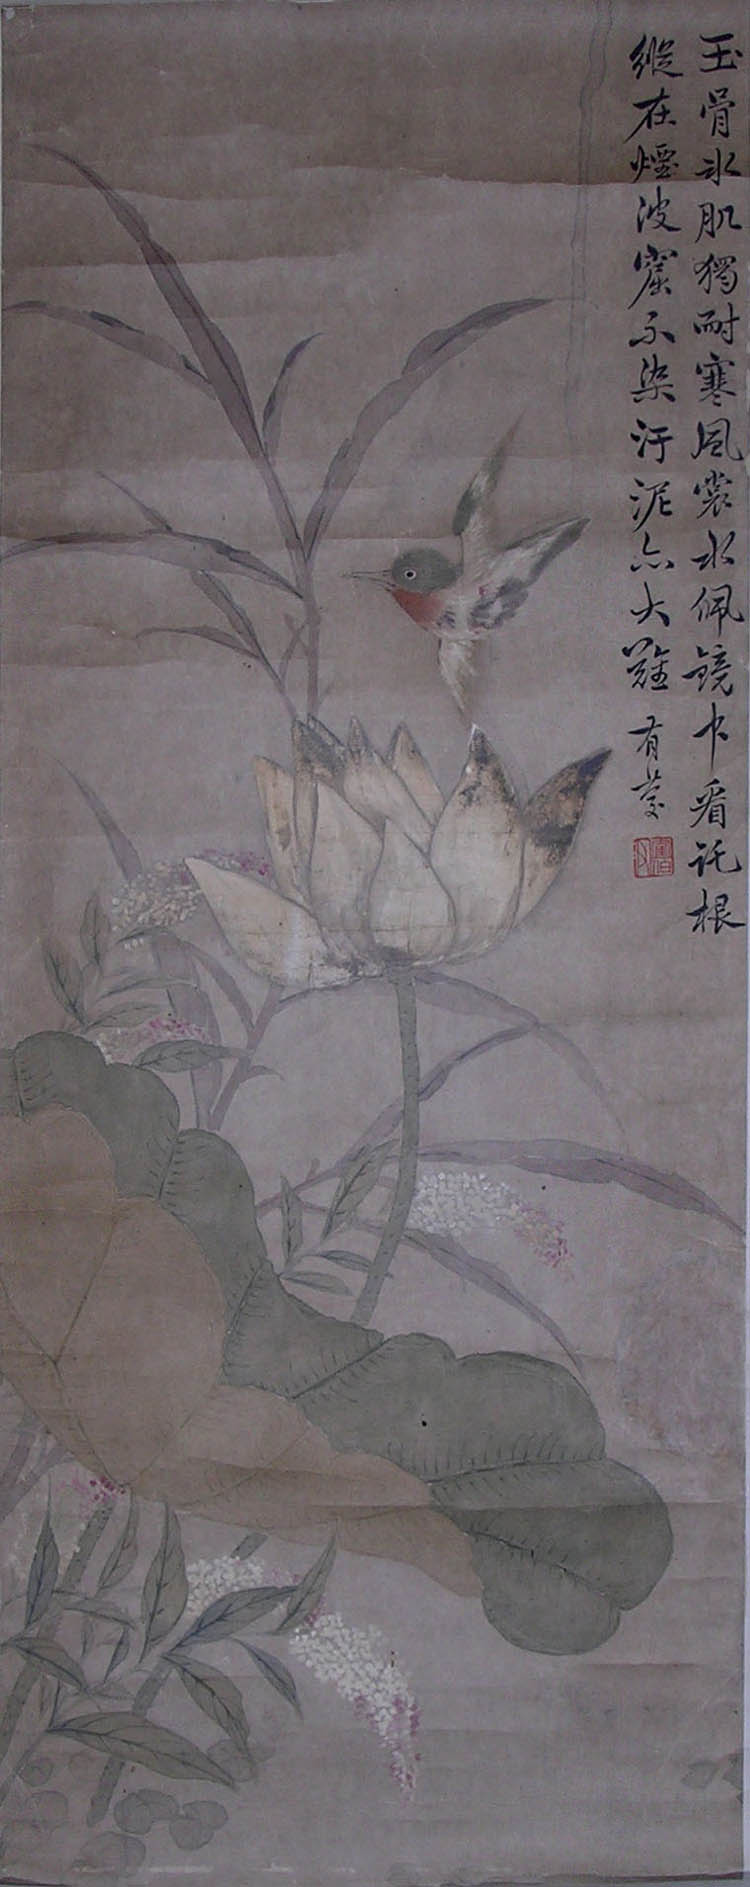 玉骨冰肌獨耐寒風裳水佩鏡中看託根
縱在煙波窟不染汙泥亦大難 有